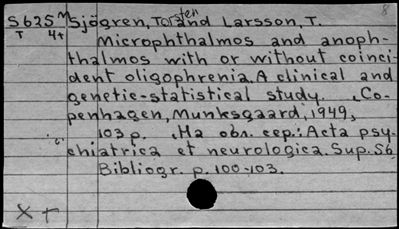 8
S625 M Sjögren, Torsten and Larsson, T.
T 4+ Microphthalmos and anoph-
thalmos with or without coinci-
dent oligophrenia. A clinical and
genetic-statistical study. , Co-
penhagen, Munksgaard, 1949,
103 p. , На обл. сер.: Acta psy-
chiatrica et neurologica. Sup. 56.
Bibliogr. p. 100-103.
X +